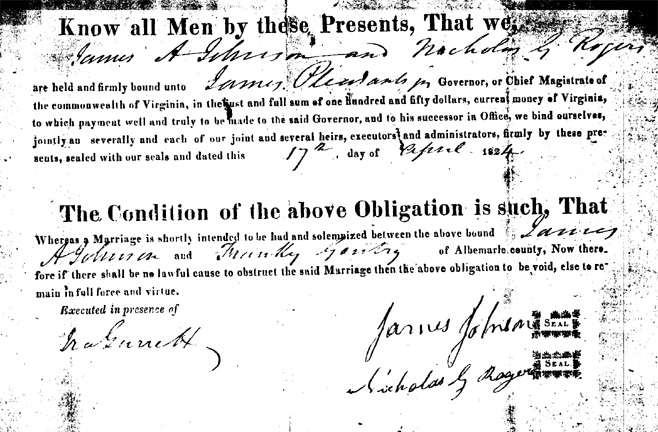 Know all Men by these Presents, That we,
James A Johnson and Nicholas G Rogers
are held and firmly bound unto James Pleasants jr Governor, or Chief Magistrate of
the commonwealth of Virginia, in the just and full sum of one hundred and fifty dollars, current money of Virginia,
to which payment well and truly to be made to the said Governor, and to his successor in Office, we bind ourselves,
jointly an severally and each of our joint and several heirs, executors and administrators, firmly by these pre-
sents, sealed with our seals and dated this 17th day of April 1824.
The Condition of the above Obligation is such, That
Whereas a Marriage is shortly intended to be had and solemnized between the above bound James
A Johnson and Franky Gentry of Albemarle county, Now there-
fore if there shall be no lawful cause to obstruct the said Marriage then the above obligation to be void, else to re-
main in full force and virtue.
Executed in presence of
Ira Garrett
James Johnson SEAL
Nicholas G Rogers SEAL